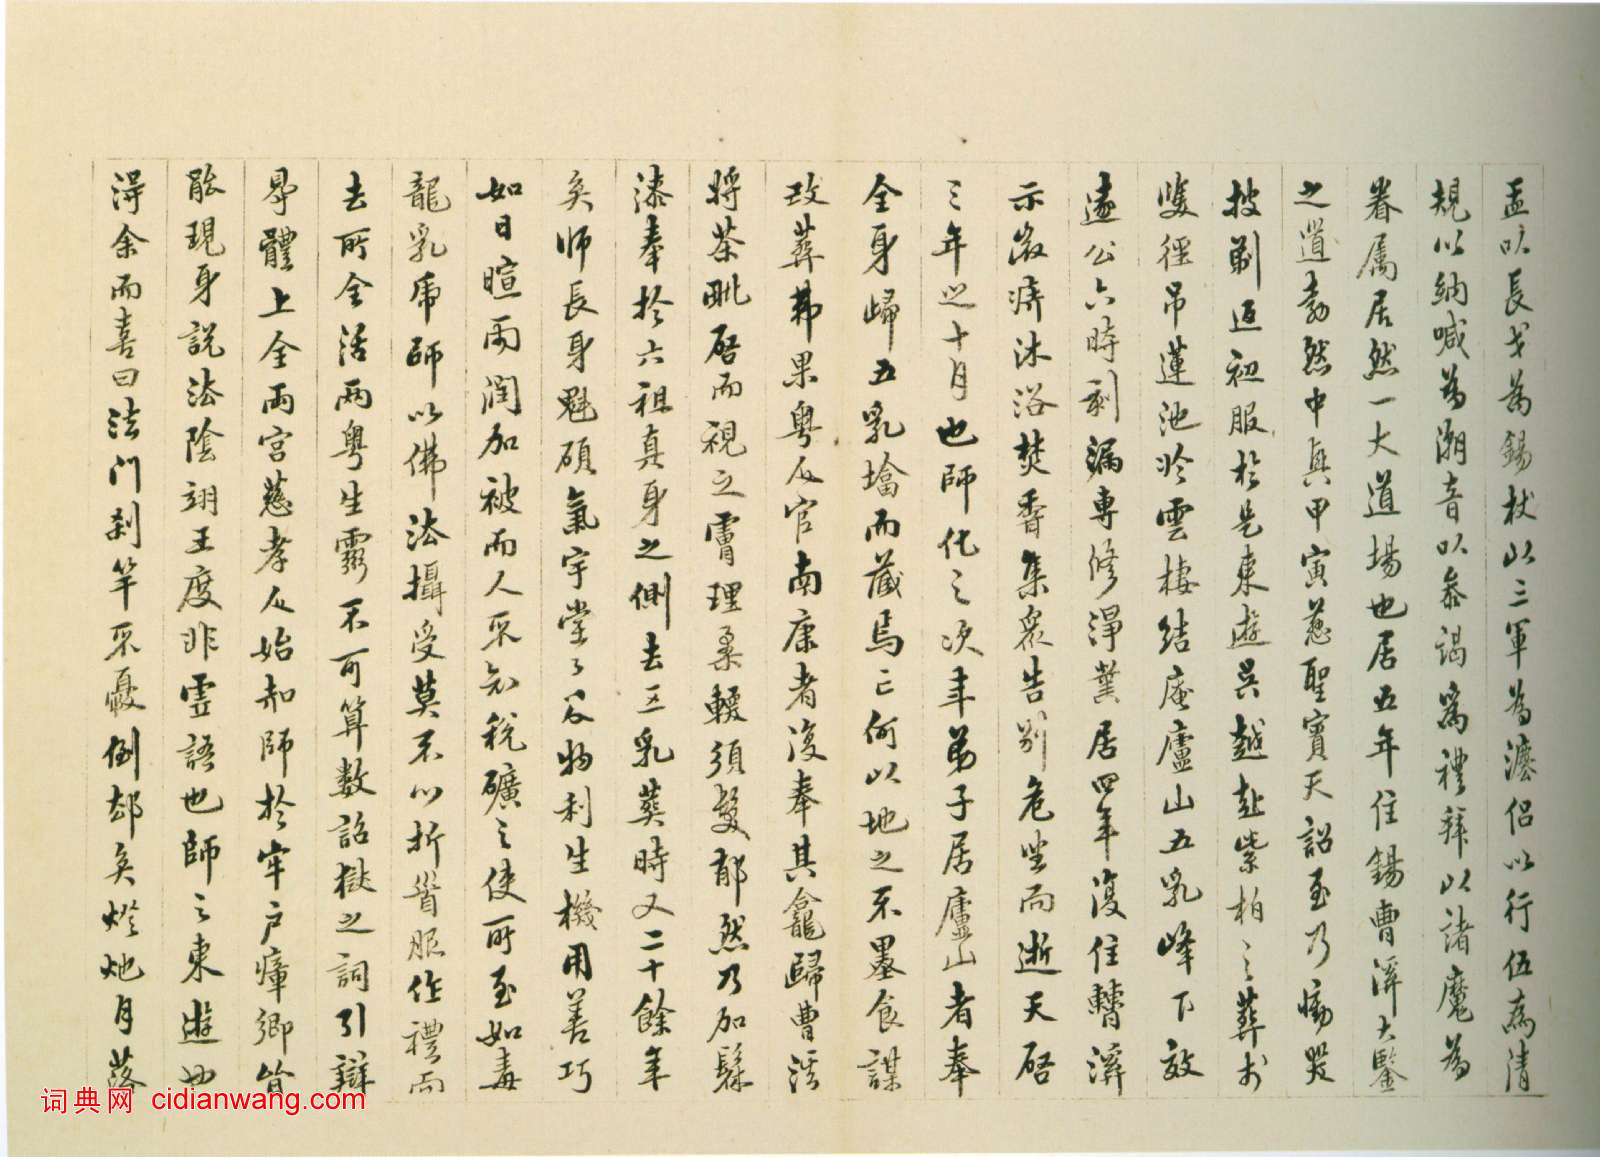 盂以長戈為錫杖以三軍為法侶以行伍為清
規以納喊為潮音以參謁為禮拜以諸魔為
眷属居然一大道場也居五年住錫曹溪大鑒
之道勃然中興甲寅慈聖賓天詔至乃慟哭
披剃返初服於是東遊吳越赴紫柏之葬於
雙徑吊蓮池於雲棲結庵廬山五乳峰下效
遠公六時刻漏專修淨業居四年復住曹溪
示微疾沐浴焚香集衆告别危坐而逝天启
三年之十月也師化之次年弟子居廬山者奉
全身歸五乳塔而藏焉亡何以地之不墨食謀
改葬弗果粤人官南康者復奉其龕歸曹溪
將荼毗啓而視之膚理柔輭須髮郁然乃加髹
漆奉於六祖真身之側去五乳葬時又二十餘年
矣师長身魁碩氣宇堂々及物利生機用善巧
如日暄雨潤加被而人不知税礦之使所至如毒
龍乳虎師以佛法攝受莫不心折首服作禮而
去所全活两粤生靈不可算數詔獄之詞引辯
舉體上全兩宮慈孝人始知師於牢户瘴鄉皆
能現身説法陰翊王度非虚語也師之東遊也
得余而喜曰法門刹竿不憂倒却矣燈灺月落
词典网 cidianwang.com